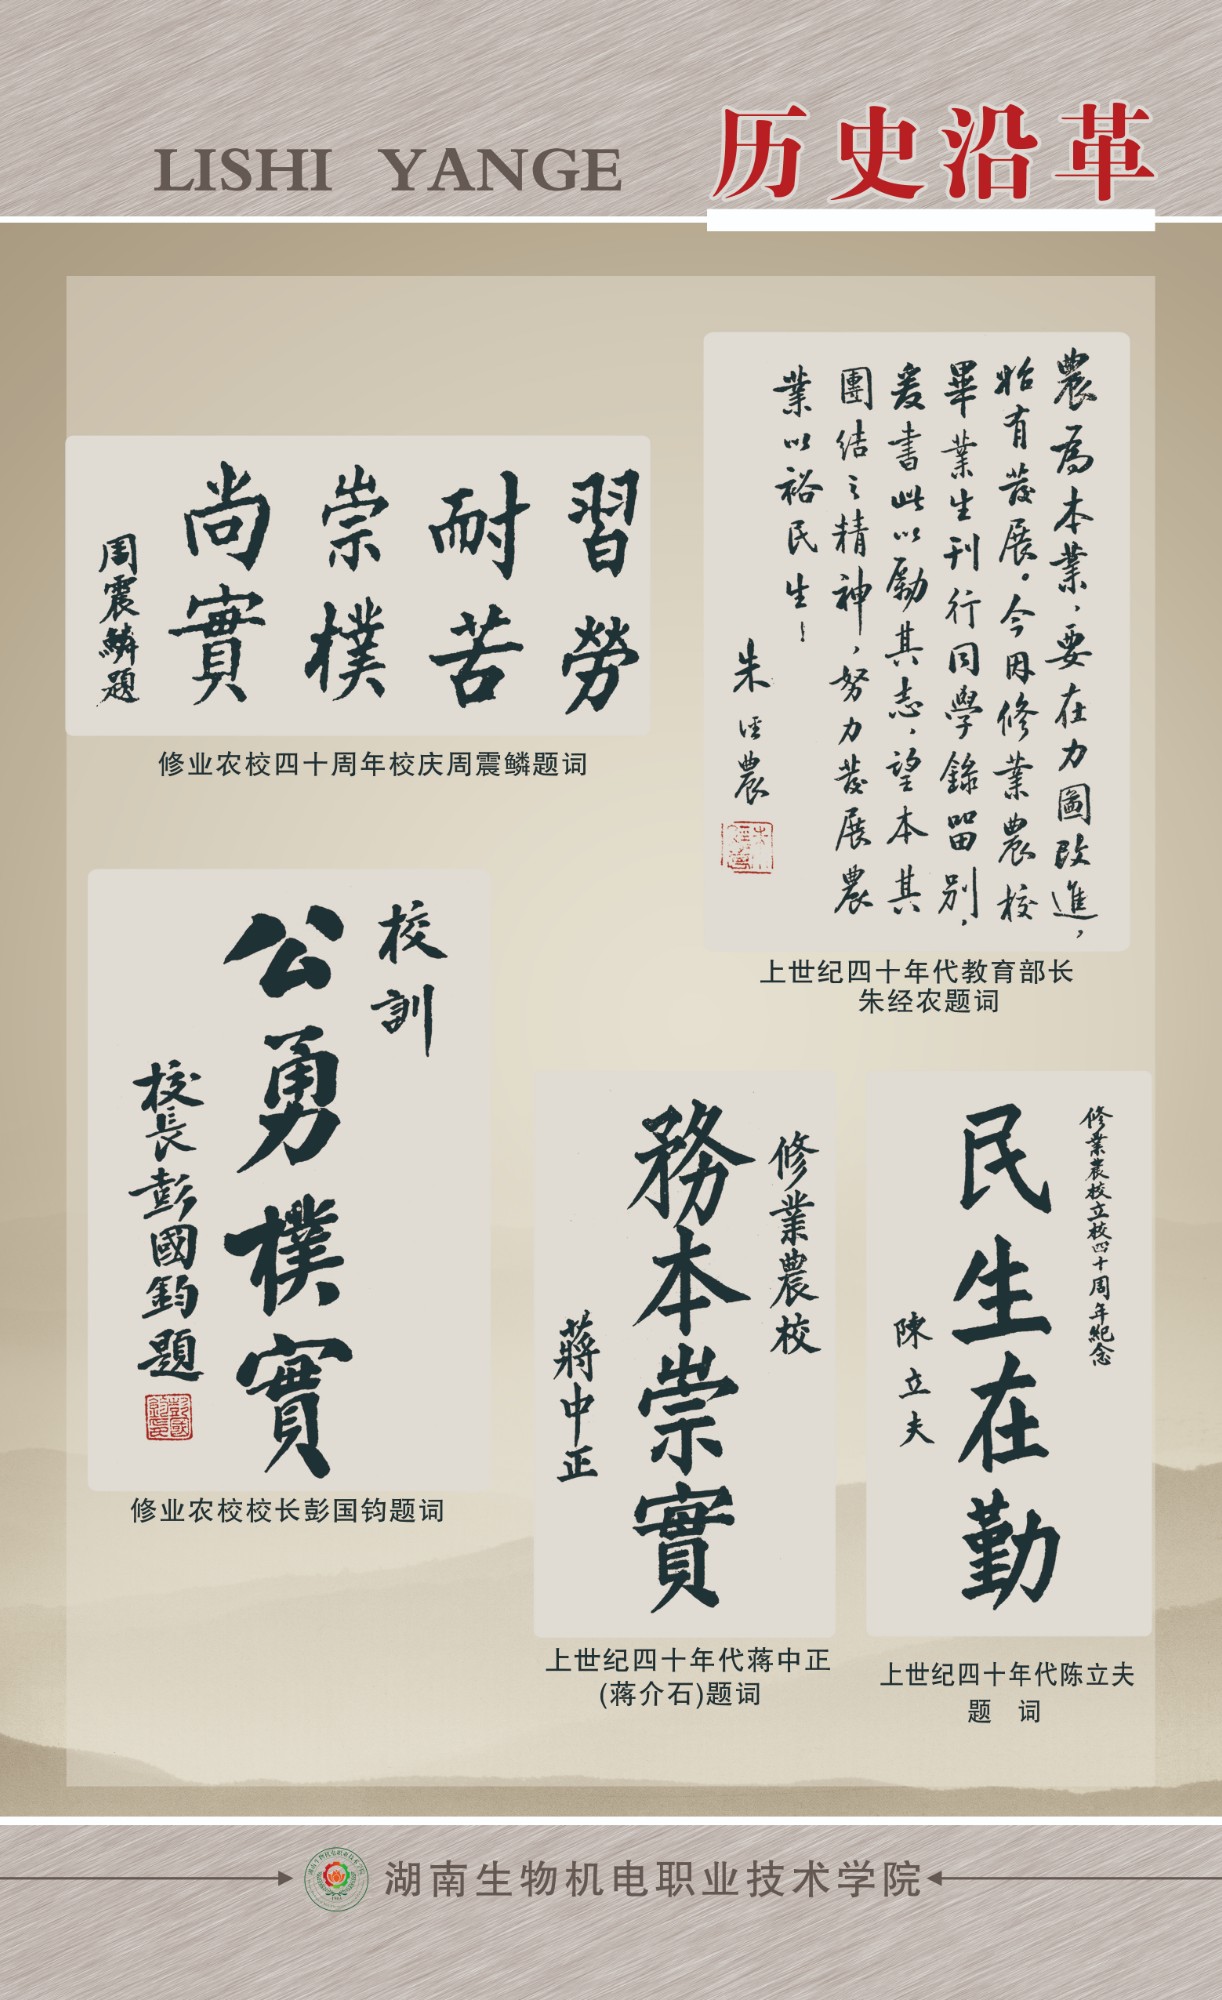 LISHI YANGE 历史沿革
習勞
耐苦
崇樸
尚實
周震鳞題
修业农校四十周年校庆周震鳞题词
農為本業，要在力圖改進，
始有發展。今因修業農校
畢業生刊行同學錄留別，
爰書此以勵其志，望本其
團結之精神，努力發展農
業以裕民生！
朱経農
上世纪四十年代教育部长
朱经农题词
校訓
公勇樸實
校長彭國鈞題
修业农校校长彭国钧题词
修業農校
務本崇實
蔣中正
上世纪四十年代蒋中正
(蒋介石)题词
修業農校立校四十周年紀念
民生在勤
陳立夫
上世纪四十年代陈立夫
题 词
湖南生物机电职业技术学院